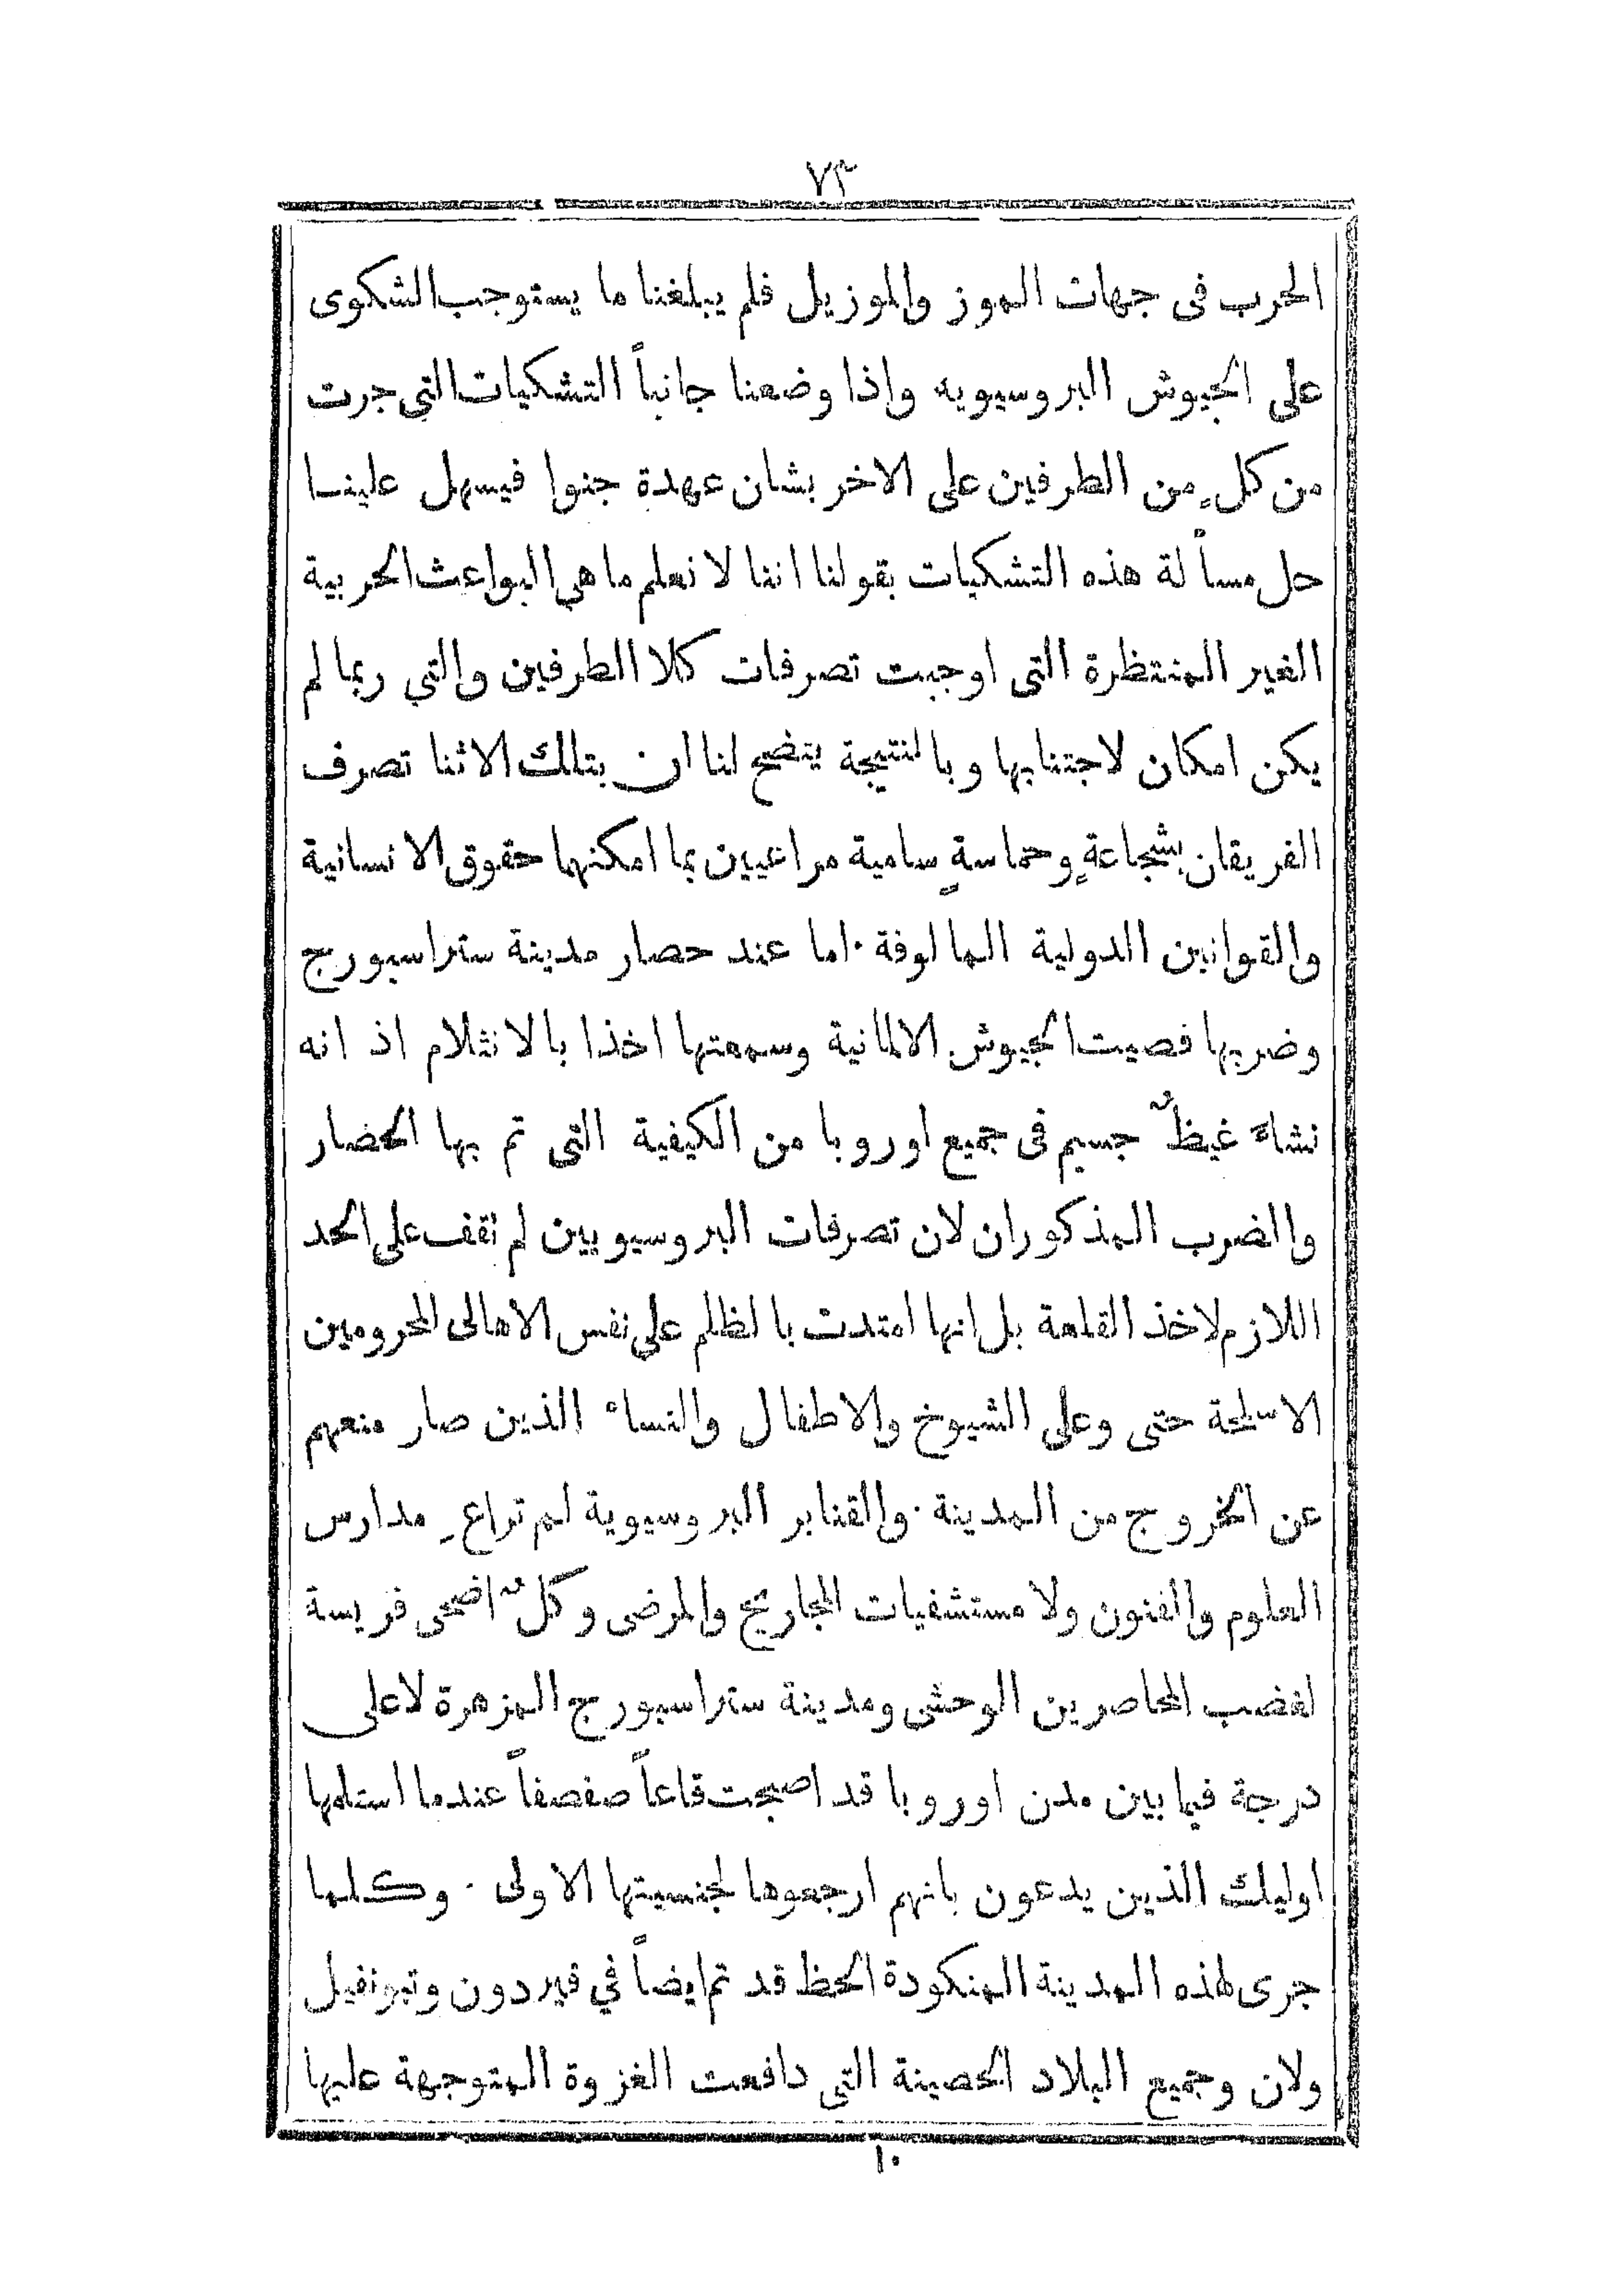 ٧٣
الحرب فى جهات الموز والموزيل فلم يبلغنا ما يستوجب الشكوى
على الجيوش البروسيويه واذا وضعنا جانباً التشكيات التى جرت
من كلٍ من الطرفين على الاخر بشان عهدة جنوا فيسهل علينا
حل مسألة هذه التشكيات بقولنا اننا لا نعلم ما هى البواعث الحربية
الغير المنتظرة التى اوجبت تصرفات كلا الطرفين والتي ربما لم
يكن امكان لاجتنابها وبالنتيجة يتضح لنا ان بتلك الاثنا تصرف
الفريقان بشجاعةٍ وحماسةٍ سامية مراعيين بما امكنهما حقوق الانسانية
والقوانين الدولية المالوفة . اما عند حصار مدينة ستراسبورج
وضربها فصيت الجيوش الالمانية وسمعتها اخذا بالانثلام اذ انه
نشاء غيظٌ جسيم فى جميع اوروبا من الكيفية التى تم بها الحضار
والضرب المذكوران لان تصرفات البروسيويين لم تقف على الحد
اللازم لاخذ القلعة بل انها امتدت بالظلم على نفس الاهالى المحرومين
الاسلحة حتى وعلى الشيوخ والاطفال والنساء الذين صار منعهم
عن الخروج من المدينة . والقنابر البروسيوية لم تراعِ مدارس
العلوم والفنون ولا مستشفيات المجاريح والمرضى وكلٌ اضحى فريسة
لغضب المحاصرين الوحشى ومدينة ستراسبورج المزهرة لاعلى
درجة فيما بين مدن اوروبا قد اصبحت قاعاً صفصفاً عندما استلمها
اوليك الذين يدعون بانهم ارجعوها لجنسيتها الاولى . وكلما
جرى لهذه المدينة المنكودة الحظ قد تم ايضاً في فيردون وتيونفيل
ولان وجميع البلاد الحصينة التى دافعت الغزوة المتوجهة عليها
١٠